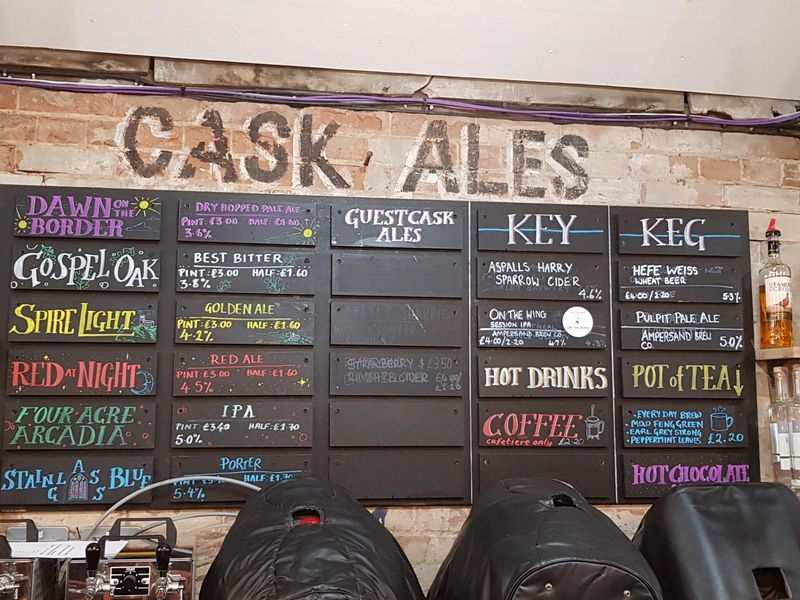 CASK ALES
DAWN ON THE BORDER
DRY HOPPED PALE ALE
PINT: £3.00 HALF: £1.60
3.6%
GOSPEL OAK
BEST BITTER
PINT: £3.00 HALF: £1.60
3.8%
SPIRE LIGHT
GOLDEN ALE
PINT: £3.00 HALF: £1.60
4.2%
RED AT NIGHT
RED ALE
PINT: £3.00 HALF: £1.60
4.5%
FOUR ACRE
ARCADIA
IPA
PINT: £3.40 HALF: £1.70
5.0%
STAIN GLASS BLUE
PORTER
HALF: £1.70
5.4%
GUEST CASK
ALES
KEY
ASPALLS HARRY
SPARROW CIDER
4.6%
ON THE WING
SESSION IPA
AMPERSAND BREW CO.
£4.00/2.20 4.7%
HOT DRINKS
COFFEE
cafetiere only £2.20
KEG
HEFE WEISS
WHEAT BEER
£4.00/2.20 5.3%
PULPIT PALE ALE
AMPERSAND BREW
CO. 5.0%
POT of TEA
EVERY DAY BREW
MAO FENG GREEN
EARL GREY STRONG
PEPPERMINT LEAVES £2.20
HOT CHOCOLATE